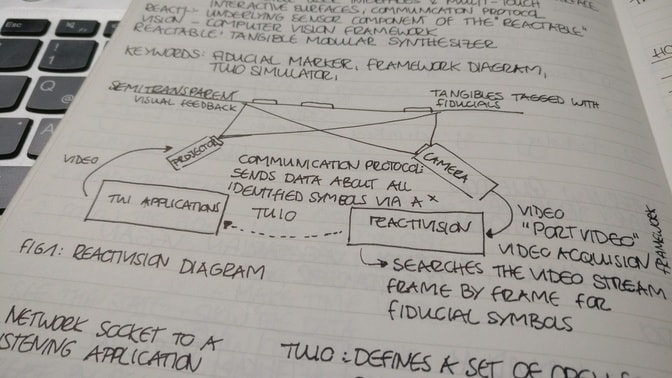 INTERACTIVE SURFACES, COMMUNICATION PROTOCOL
UNDERLYING SENSOR COMPONENT OF THE "REACTABLE"
VISION - COMPUTER VISION FRAMEWORK
REACTABLE: TANGIBLE MODULAR SYNTHESIZER
KEYWORDS: FIDUCIAL MARKER, FRAMEWORK DIAGRAM,
TUIO SIMULATOR,
SEMITRANSPARENT
VISUAL FEEDBACK
TANGIBLES TAGGED WITH
FIDUCIALS
VIDEO
PROJECTOR
CAMERA
COMMUNICATION PROTOCOL:
SENDS DATA ABOUT ALL
IDENTIFIED SYMBOLS VIA A *
TUIO
TUI APPLICATIONS
REACTIVISION
VIDEO
"PORTVIDEO"
VIDEO ACQUISION
FRAMEWORK
FIG 1: REACTIVISION DIAGRAM
SEARCHES THE VIDEO STREAM
FRAME BY FRAME FOR
FIDUCIAL SYMBOLS
NETWORK SOCKET TO A
APPLICATION
TUIO: DEFINES A SET OF